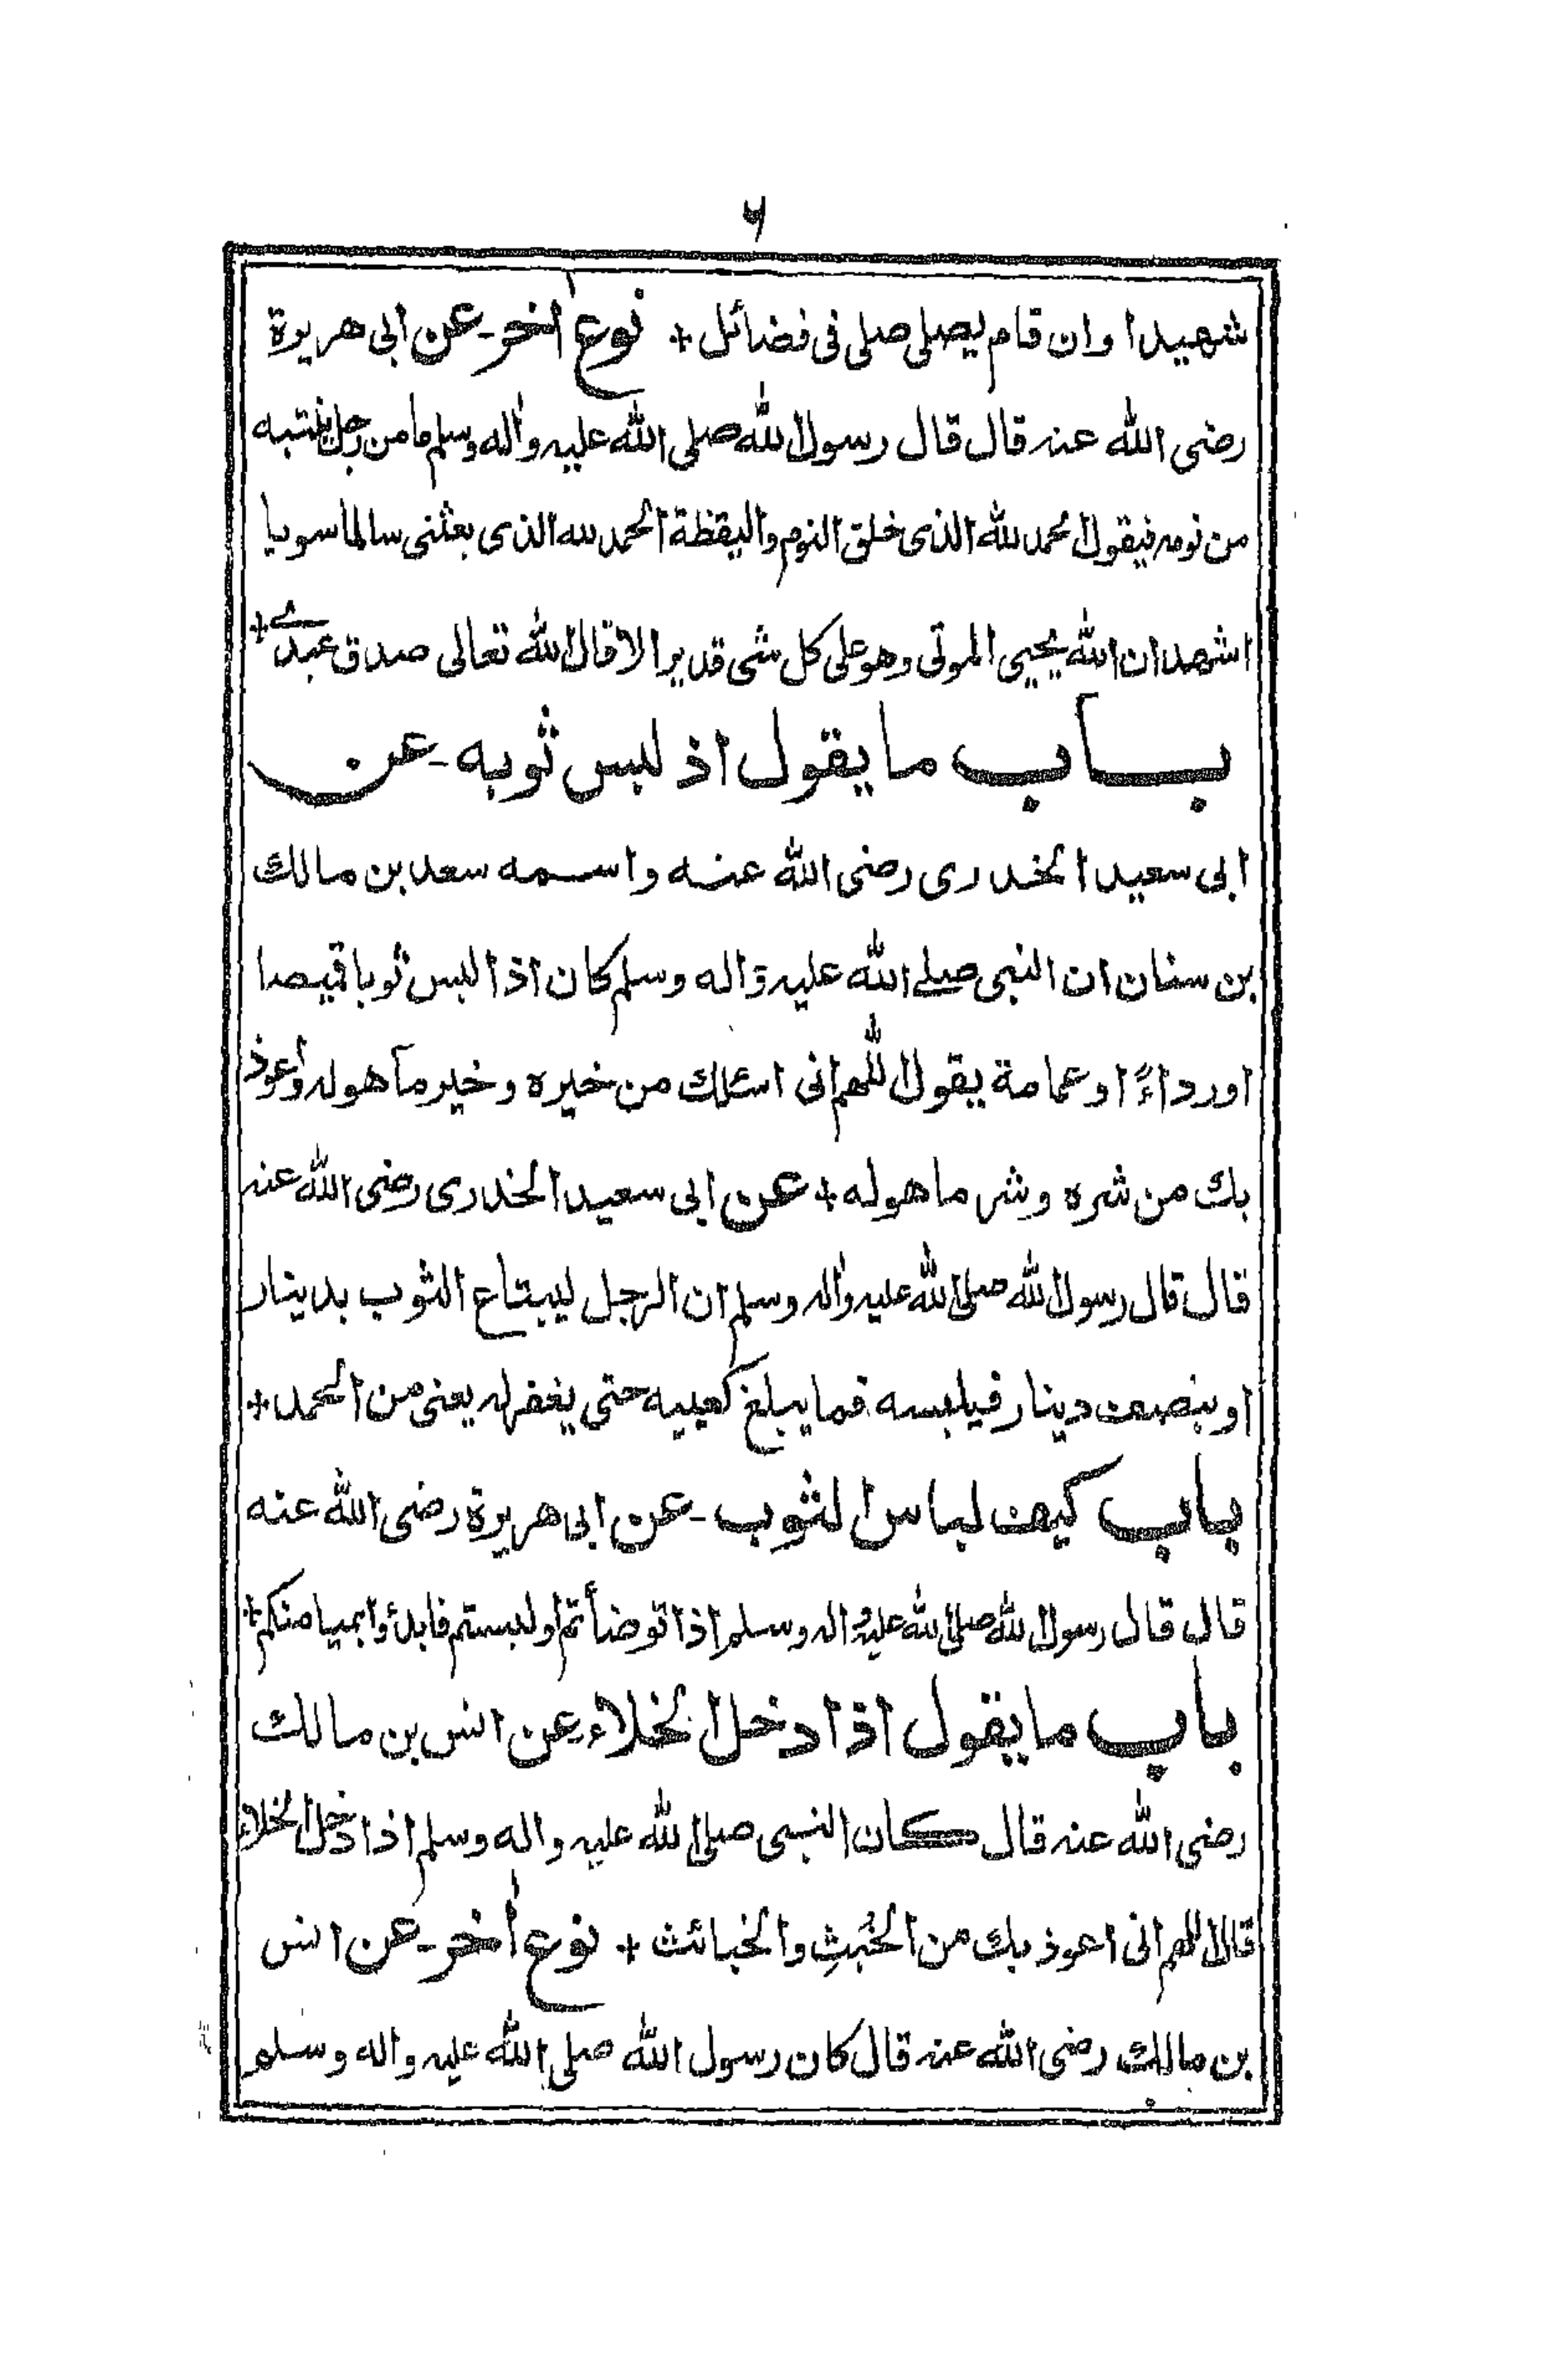 ۶
شهيدا وان قام يصلى صلى فى فضائل + نوع اٰخر ـ عن ابى هريرة
رضى الله عنه قال قال رسول الله صلى الله عليه واٰله وسلم ما من رجل ينتبه
من نومه فيقول الحمد لله الذى خلق النوم واليقظة الحمد لله الذى بعثنى سالما سويا
اشهد ان الله يحيى الموتى وهو على كل شى قدير الا قال الله تعالى صدق عبدے +
باب ما يقول اذ لبس ثوبه ـ عن
ابى سعيد الخدرى رضى الله عنه واسمه سعد بن مالك
بن سنان ان النبى صلے الله عليه واٰله وسلم كان اذا لبس ثوبا قميصا
او رداءً او عمامة يقول اللهم انى اسئلك من خيره وخير ما هو له واعوذ
بك من شره وشر ما هو له + عن ابى سعيد الخدرى رضى الله عنه
قال قال رسول الله صلى الله عليه واٰله وسلم ان الرجل ليبتاع الثوب بدينار
او بنصف دينار فيلبسه فما يبلغ كعبيه حتى يغفر له يعنى من الحمد +
باب كيف لباس الثوب ـ عن ابى هريرة رضى الله عنه
قال قال رسول الله صلى الله عليه واله وسلم اذا توضأتم او لبستم فابدؤا بميامنكم +
باب ما يقول اذا دخل الخلاء عن انس بن مالك
رضى الله عنه قال كان النبى صلى الله عليه واله وسلم اذا دخل الخلاء
قال اللهم انى اعوذ بك من الخُبثِ والخبائث + نوع اٰخر ـ عن انس
بن مالك رضى الله عنه قال كان رسول الله صلى الله عليه واله وسلم